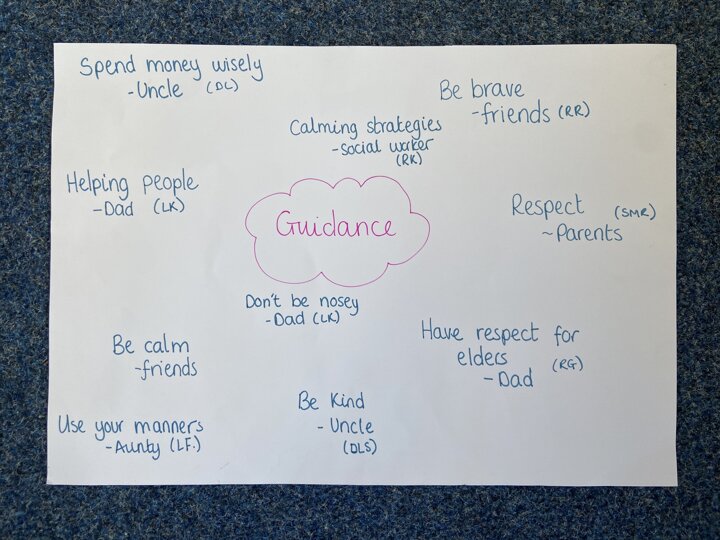 Spend money wisely
-Uncle (DL)
Be brave
-friends (RR)
Calming strategies
-social worker
(RK)
Helping people
-Dad (LK)
Respect (SMR)
~Parents
Guidance
Don't be nosey
-Dad (LK)
Have respect for
elders (RG)
-Dad
Be calm
-friends
Be Kind
- Uncle
(DLS)
Use your manners
-Aunty (LF.)